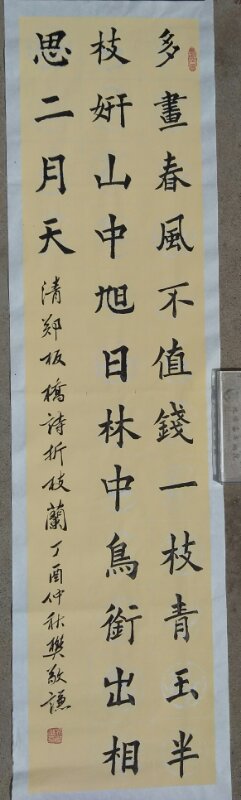 多畫春風不值錢一枝青玉半
枝妍山中旭日林中鳥銜出相
思二月天
清鄭板橋詩折枝蘭丁酉仲秋樊敬謙